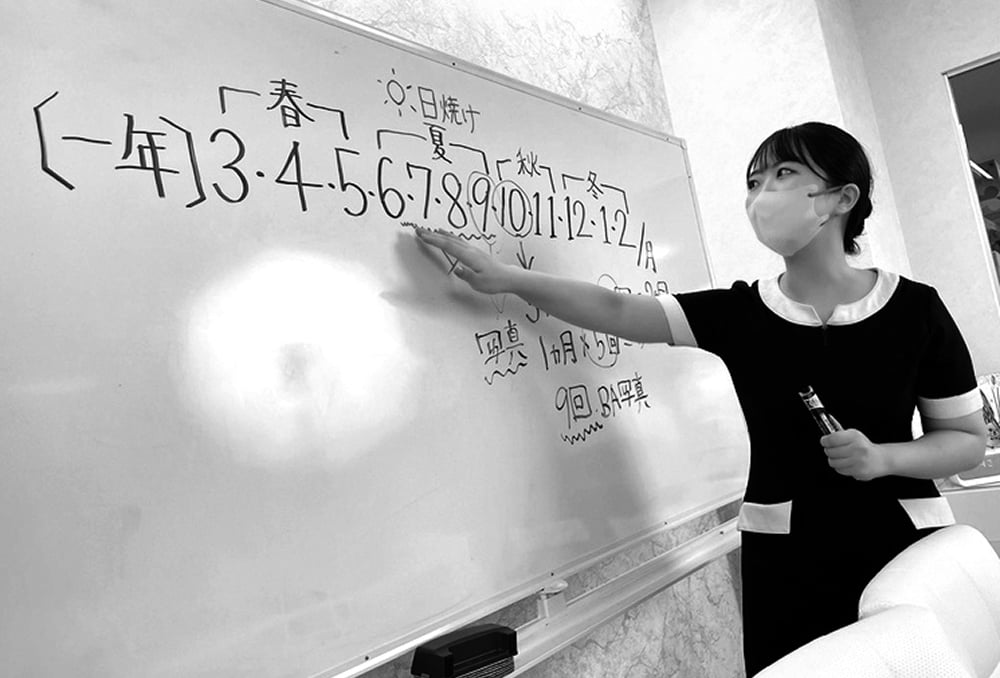 日焼け
春 夏 秋 冬
[一年] 3・4・5・6・7・8・9・10・11・12・1・2/月
写真 1ヵ月×5回
9回 BA写真